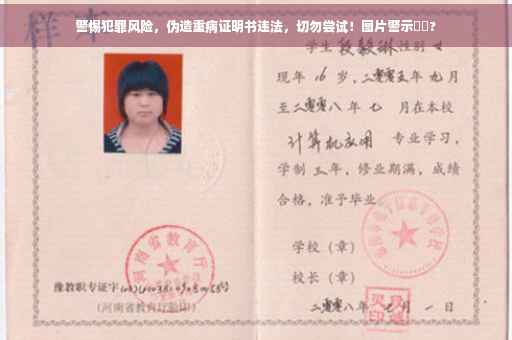 警惕犯罪风险，伪造重病证明书违法，切勿尝试！图片警示□□？
样本
学生段毅琳性别女
现年16岁，二零零五年九月
至二零零八年七月在本校
计算机应用专业学习，
学制三年，修业期满，成绩
合格，准予毕业。
学校（章）
校长（章）
二零零八年七月一日
河南省教育厅
豫教职专证字
（河南省教育厅验印）